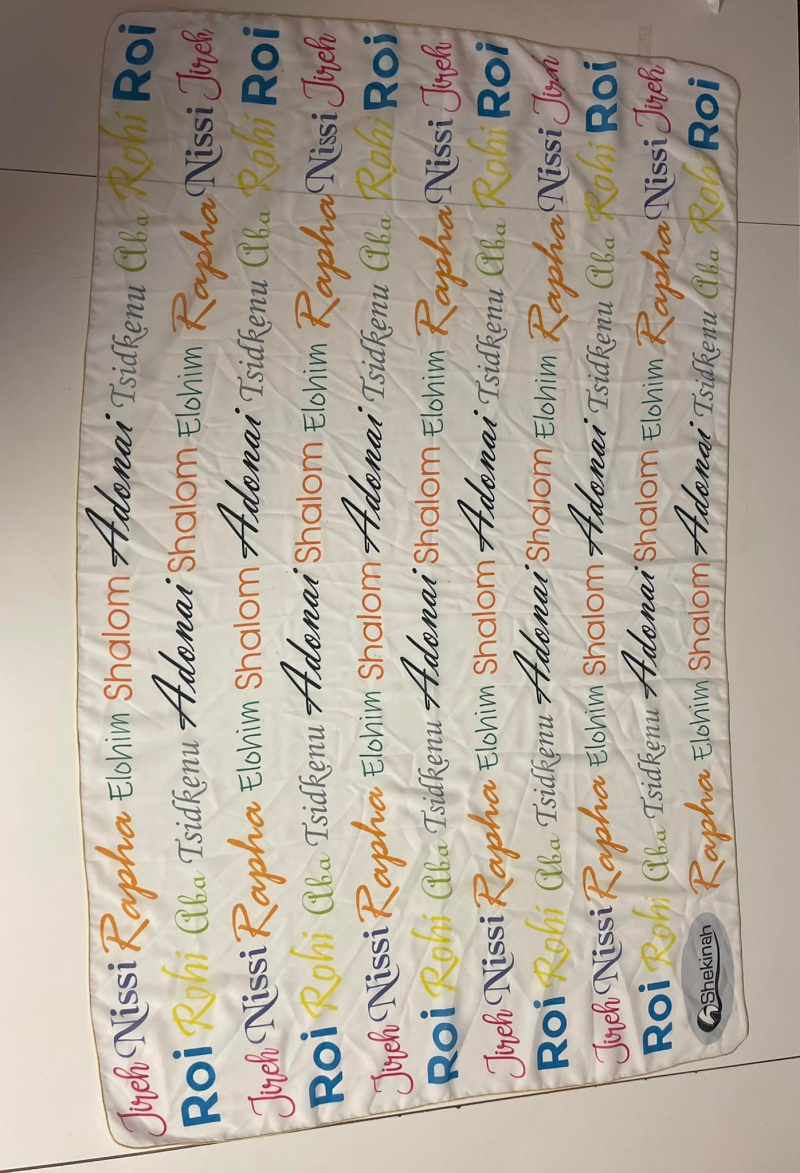 Jireh Nissi Rapha Elohim Shalom Adonai Tsidkenu Aba Rohi Roi
Roi Rohi Aba Tsidkenu Adonai Shalom Elohim Rapha Nissi Jireh
Jireh Nissi Rapha Elohim Shalom Adonai Tsidkenu Aba Rohi Roi
Roi Rohi Aba Tsidkenu Adonai Shalom Elohim Rapha Nissi Jireh
Jireh Nissi Rapha Elohim Shalom Adonai Tsidkenu Aba Rohi Roi
Roi Rohi Aba Tsidkenu Adonai Shalom Elohim Rapha Nissi Jireh
Jireh Nissi Rapha Elohim Shalom Adonai Tsidkenu Aba Rohi Roi
Roi Rohi Aba Tsidkenu Adonai Shalom Elohim Rapha Nissi Jireh
Jireh Nissi Rapha Elohim Shalom Adonai Tsidkenu Aba Rohi Roi
Roi Rohi Aba Tsidkenu Adonai Shalom Elohim Rapha Nissi Jireh
Shekinah Rapha Elohim Shalom Adonai Tsidkenu Aba Rohi Roi